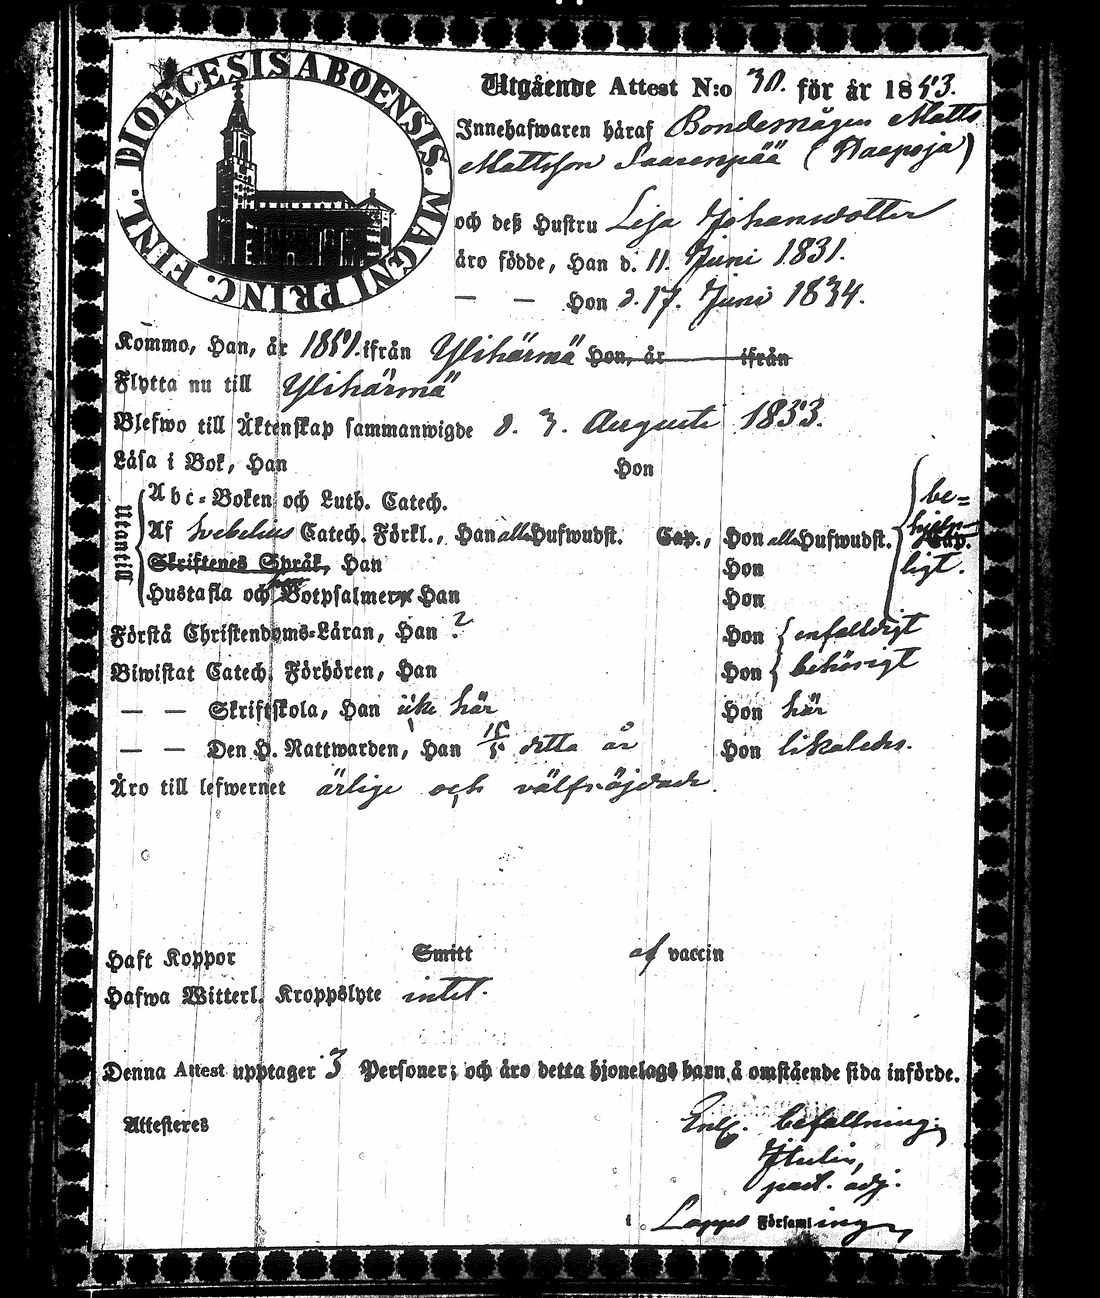 DIOECESIS ABOENSIS. MAGNI PRINC. FINL.
Utgående Attest N:o 30. för år 1853.
Innehafwaren häraf Bondemågen Matts
Mattsson Saarenpää (Raapoja)
och deß Hustru Lisa Johansdotter
äro födde, Han d. 11. Juni 1831.
— — Hon d. 17. Juni 1834.
Kommo, Han, år 1851. ifrån Ylihärmä Hon, år ifrån
Flytta nu till Ylihärmä
Blefwo till Äktenskap sammanwigde d. 3. Augusti 1853.
Läsa i Bok, Han Hon
Utantill
Abc-Boken och Luth. Catech.
Af Svebelius Catech. Förkl., Han alla Hufwudst. Cap., Hon alla Hufwudst. Cap.
be-
hjelp-
ligt.
Skriftenes Språk, Han Hon
Hustafla och Botpsalmer Han Hon
Förstå Christendoms-Läran, Han ? Hon enfalldigt
Biwistat Catech. Förhören, Han Hon behörigt
— — Skriftskola, Han icke här Hon här
— — Den H. Nattwarden, Han detta år Hon likaledes.
Äro till lefwernet ärlige och välfrejdade.
Haft Koppor Smitt af vaccin
Hafwa Witterl. Kroppslyte intet.
Denna Attest upptager 3 Personer; och äro detta hjonelags barn å omstående sida införde.
Attesteres
Enl. befallning,
past. adj.
i Lappo Församling,